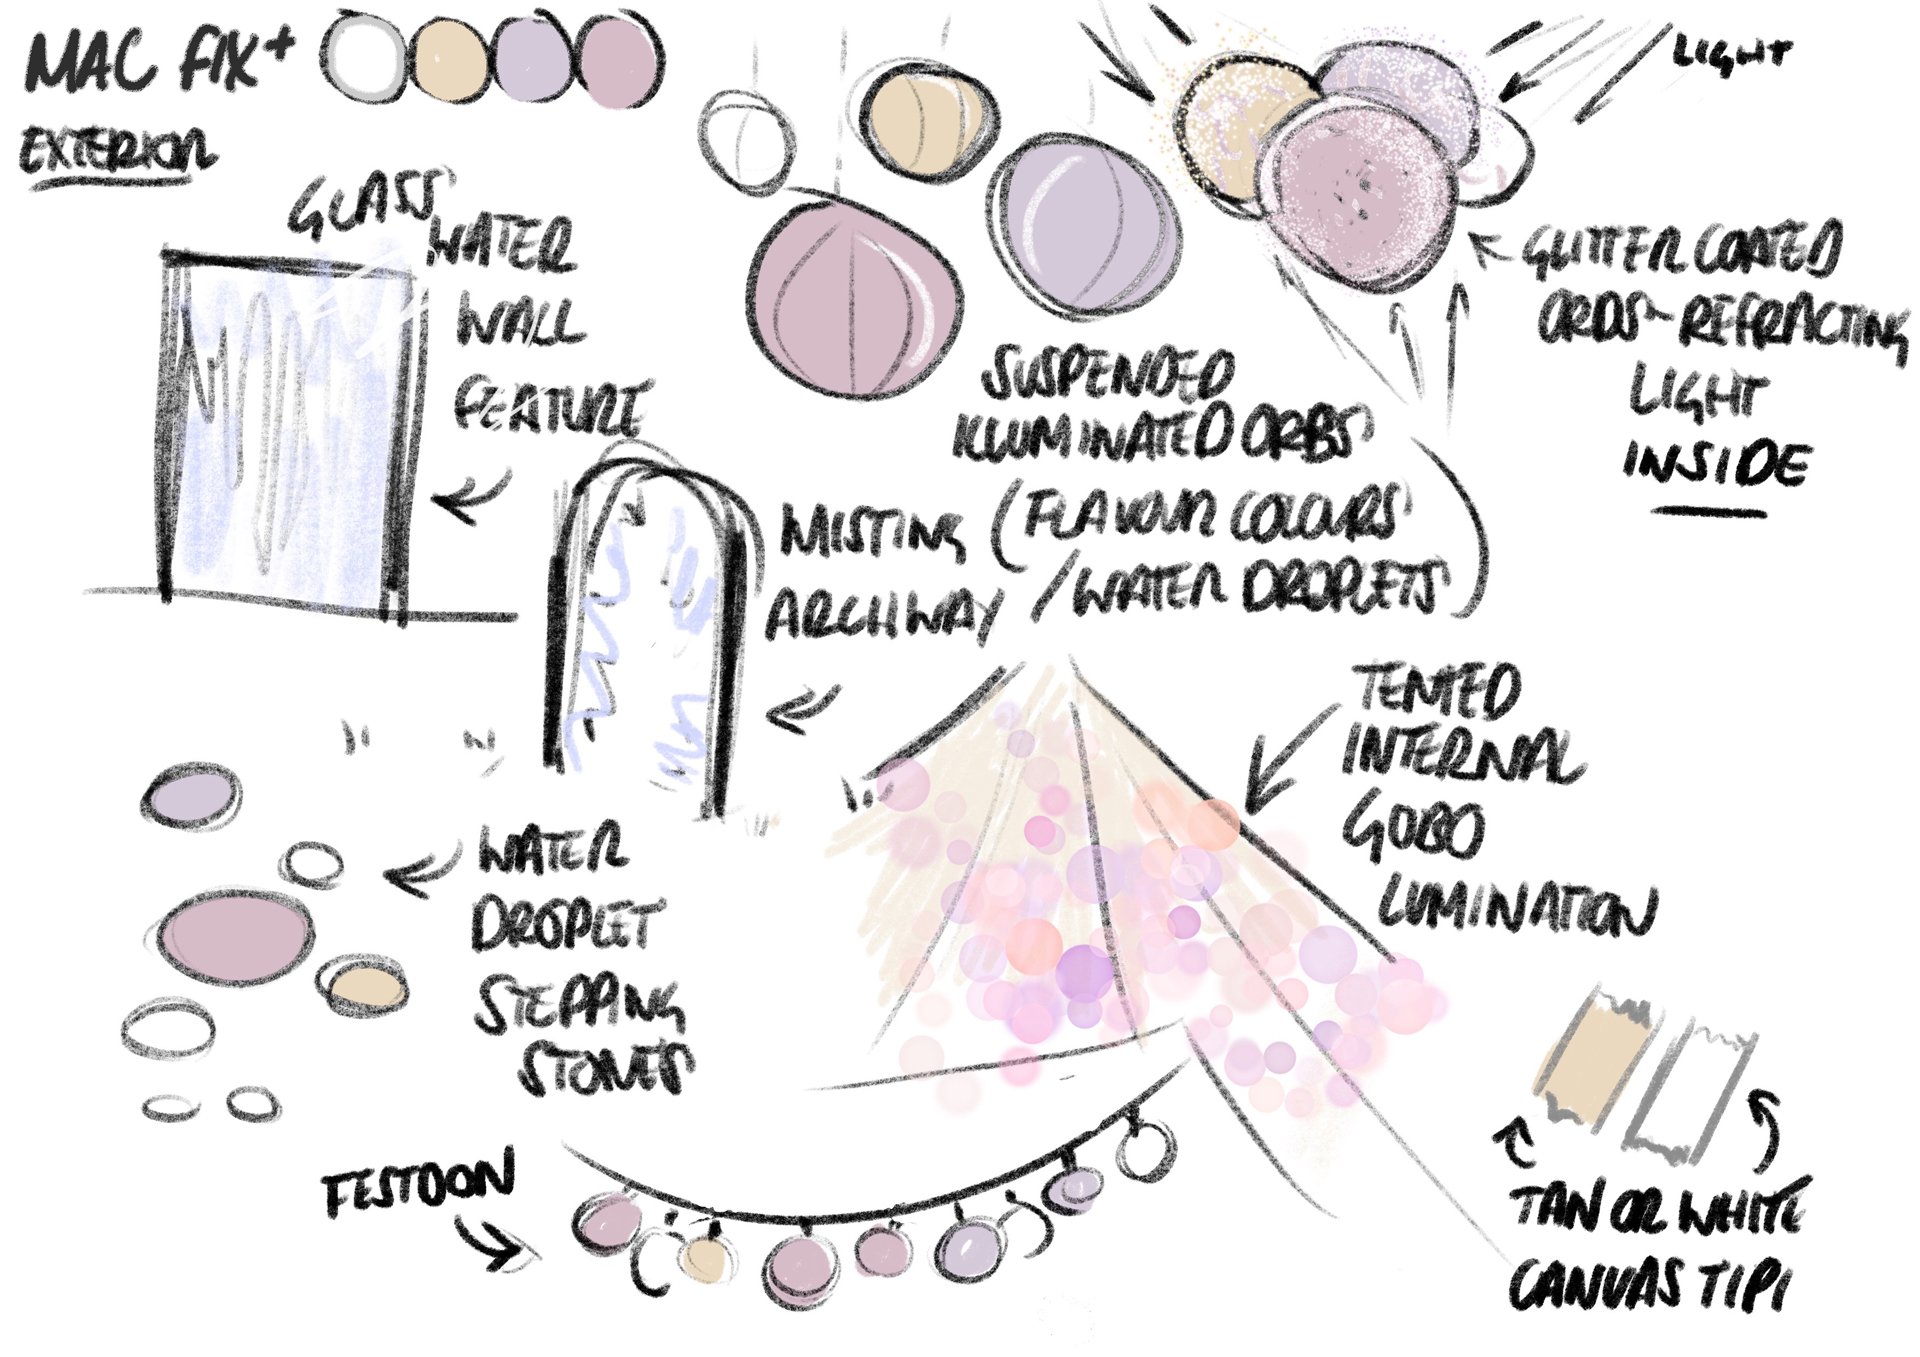 MAC FIX+
EXTERIOR
LIGHT
GLASS
WATER
WALL
FEATURE
GLITTER COATED
ORBS - REFRACTING
LIGHT
INSIDE
SUSPENDED
ILLUMINATED ORBS
(FLAVOUR COLOURS
/WATER DROPLETS)
MISTING
ARCHWAY
TENTED
INTERNAL
GOBO
LUMINATION
WATER
DROPLET
STEPPING
STONES
FESTOON
TAN OR WHITE
CANVAS TIPI